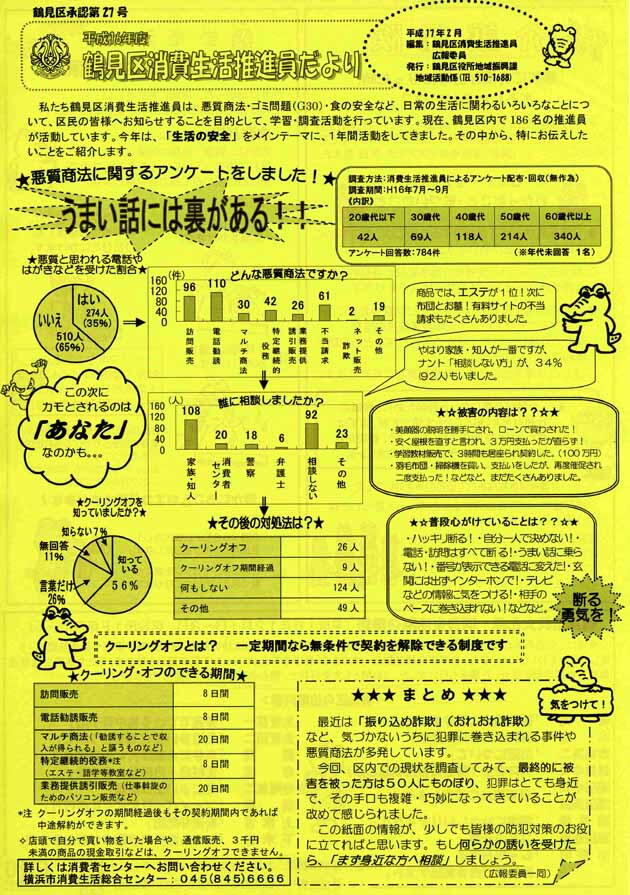 鶴見区承認第27号
平成16年度
鶴見区消費生活推進員だより
平成17年2月
編集:鶴見区消費生活推進員
広報委員
発行:鶴見区役所地域振興課
地域活動係(TEL 510-1688)
私たち鶴見区消費生活推進員は、悪質商法・ゴミ問題(G30)・食の安全など、日常の生活に関わるいろいろなことについ
て、区民の皆様へお知らせすることを目的として、学習・調査活動を行っています。現在、鶴見区内で186名の推進員
が活動しています。今年は、「生活の安全」をメインテーマに、1年間活動をしてきました。その中から、特にお伝えした
いことをご紹介します。
★悪質商法に関するアンケートをしました!★
うまい話には裏がある!!
調査方法:消費生活推進員によるアンケート配布・回収(無作為)
調査期間:H16年7月~9月
《内訳》
20歳代以下 30歳代 40歳代 50歳代 60歳代以上
42人 69人 118人 214人 340人
アンケート回答数:784件 (※年代未回答 1名)
★悪質と思われる電話や
はがきなどを受けた割合★
はい
274人
(35%)
いいえ
510人
(65%)
どんな悪質商法ですか?
(件)
160
120
80
40
0
96 110 30 42 26 61 2 19
訪問販売
電話勧誘
マルチ商法
特定継続的役務
業務提供誘引販売
不当請求
ネット販売詐欺
その他
商品では、エステが1位!次に
布団とお墓!有料サイトの不当
請求もたくさんありました。
やはり家族・知人が一番ですが、
ナント「相談しない方」が、34%
(92人)もいました。
この次に
カモとされるのは
「あなた」
なのかも。。。
誰に相談しましたか?
(人)
160
120
80
40
0
108 20 18 6 92 23
家族・知人
消費者センター
警察
弁護士
相談しない
その他
★☆被害の内容は??☆★
・美顔器の説明を勝手にされ、ローンで買わされた!
・安く屋根を直すと言われ、3万円支払ったが直らず!
・学習教材販売で、3時間も居座られ契約した。(100万円)
・羽毛布団・掃除機を買い、支払いをしたが、再度催促され
二度支払った!などなど、まだたくさんありました。
★クーリングオフを
知っていましたか?★
知らない7%
無回答
11%
言葉だけ
26%
知って
いる
56%
★その後の対処法は?★
クーリングオフ 26人
クーリングオフ期間経過 9人
何もしない 124人
その他 49人
★☆普段心がけていることは??☆★
・ハッキリ断る!・自分一人で決めない!・
電話・訪問はすべて断る!・うまい話に乗ら
ない!・番号が表示できる電話に変えた!・玄
関には出ずインターホンで!・テレビ
などの情報に気をつける!・相手の
ペースに巻き込まれない!などなど。
断る
勇気を!
クーリングオフとは? 一定期間なら無条件で契約を解除できる制度です
★クーリング・オフのできる期間★
訪問販売 8日間
電話勧誘販売 8日間
マルチ商法(「勧誘することで収
入が得られる」と謳うものなど) 20日間
特定継続的役務*注
(エステ・語学等教室など) 8日間
業務提供誘引販売(仕事斡旋の
ためのパソコン販売など) 20日間
*注 クーリングオフの期間経過後もその契約期間内であれば
中途解約ができます。
◇店頭で自分で買い物をした場合や、通信販売、3千円
未満の商品の現金取引などは、クーリングオフできません。
詳しくは消費者センターへお問い合わせください。
横浜市消費生活総合センター:045(845)6666
気をつけて!
★★★ まとめ ★★★
最近は「振り込め詐欺」(おれおれ詐欺)
など、気づかないうちに犯罪に巻き込まれる事件や
悪質商法が多発しています。
今回、区内での現状を調査してみて、最終的に被
害を被った方は50人にものぼり、犯罪はとても身近
で、その手口も複雑・巧妙になってきていることが
改めて感じられました。
この紙面の情報が、少しでも皆様の防犯対策のお役
に立てればと思います。もし何らかの誘いを受けた
ら、「まず身近な方へ相談」しましょう。
(広報委員一同)